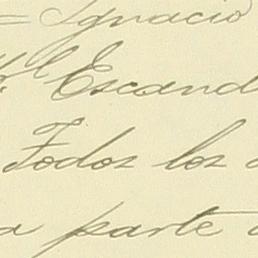 = Ignacio
Escand
Todos los
a parte